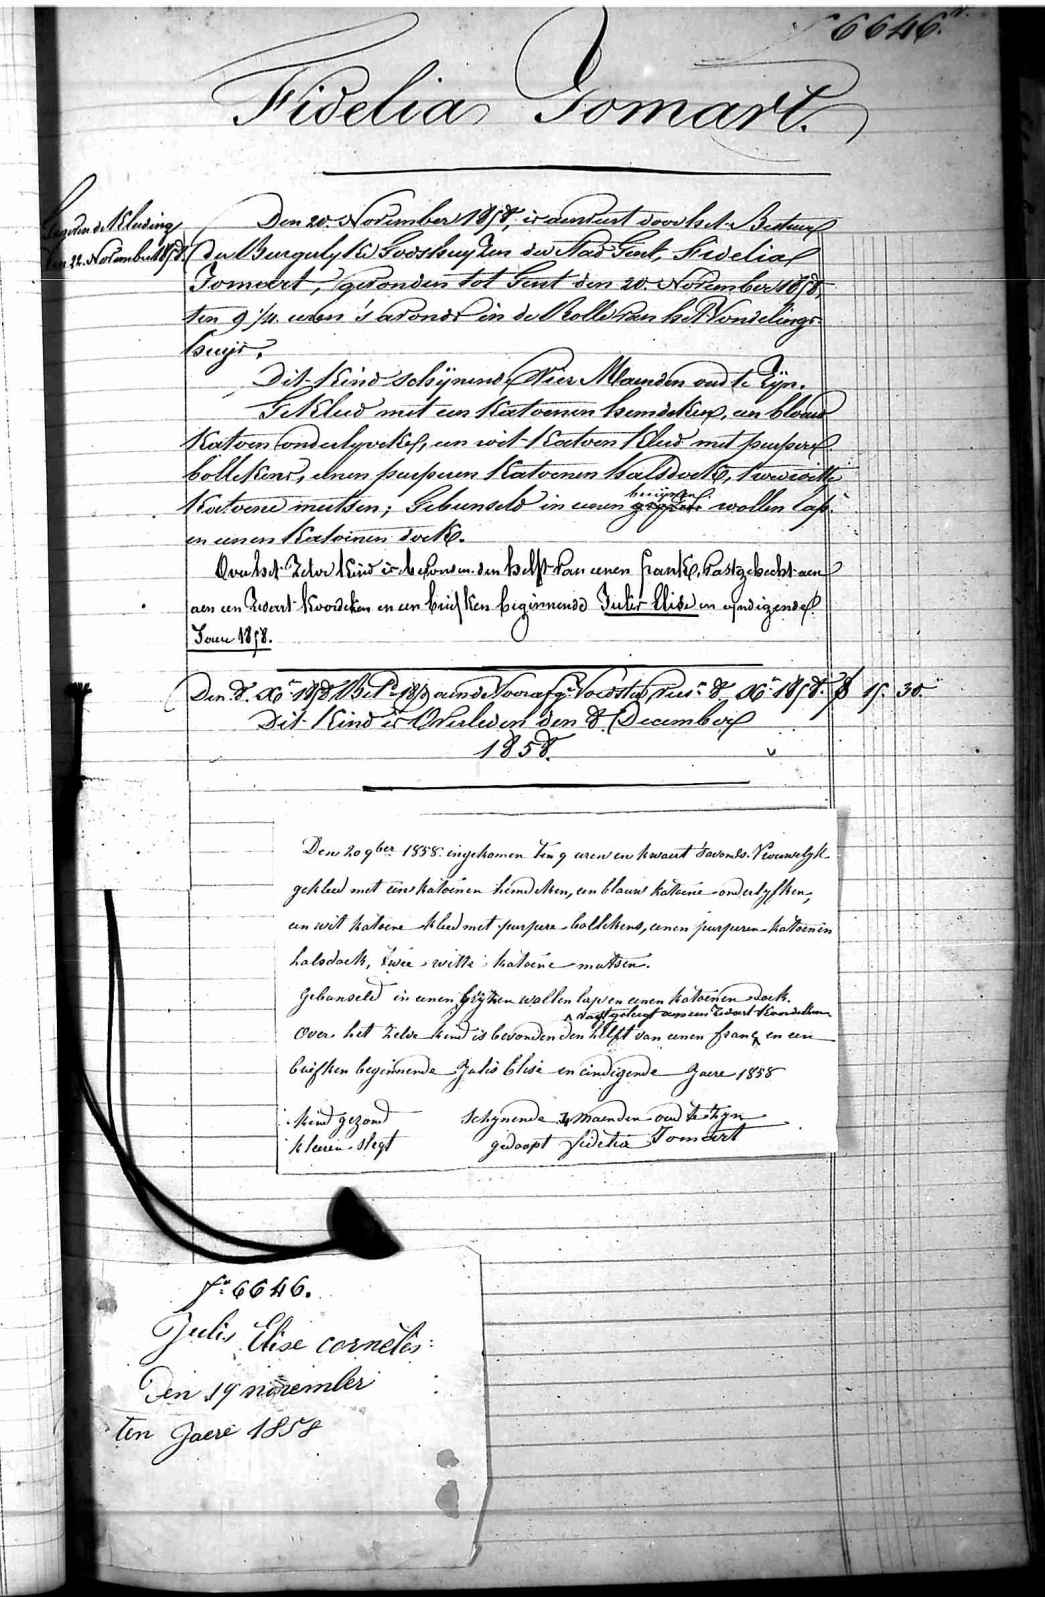 f° 6646.
Fidelia Jomart.
Gegeven de Kleeding
den 22. November 1858.
Den 20. November 1858, is aenveert door het Bestuur
der Burgerlyke Godshuyzen der Stad Gent, Fidelia
Jomart, gevonden tot Gent den 20. November 1858,
ten 9 1/4 uren 's avonds in de Rolle van het Vondelings-
huys.
Dit Kind schijnende Vier Maenden oud te Zijn.
Gekleed met een Katoenen hemdeken, een blauw
Katoen onderlyveken, een wit Katoen Kleed met purpere
bollekens, eenen purperen Katoenen halsdoek, twee witte
Katoene mutsen; Gebunseld in eenen grijsen wollen lap
en eenen Katoenen doek.
Over het Zelve Kind is bevonden den helft van eenen frank, vastgehecht aen
aen een Zwart Koordeken en een briefken beginnende Julis Elise en eyndigende
Jaere 1858.
Den 8. Xb. 1858 Bet. 18 aen de Voorafg. Voedster, rus. 8 Xb. 1858. f 15. 30
Dit Kind is Overleden den 8. December
1858.
Den 20 9ber 1858. ingekomen ten 9 uren en kwaert Savonds. Vrouwelyk
gekleed met een katoenen hemdeken, een blauw katoene onderlyfken,
een wit katoene kleed met purpere bollekens, eenen purperen katoenen
halsdoek, twee witte katoene mutsen.
Gebunseld in eenen grijzen wollen lap en eenen katoenen doek.
vast gelegt aen een Zwart Koordeken
Over het zelve kind is bevonden den helft van eenen frank en een
briefken beginnende Julis Elise en eindigende Jaere 1858
kind gezond schynende 4 maenden oud te zyn
kleeren slegt gedoopt Fidelia Jomart
f° 6646.
Julis Elise cornelis
Den 19 november
ten Jaere 1858